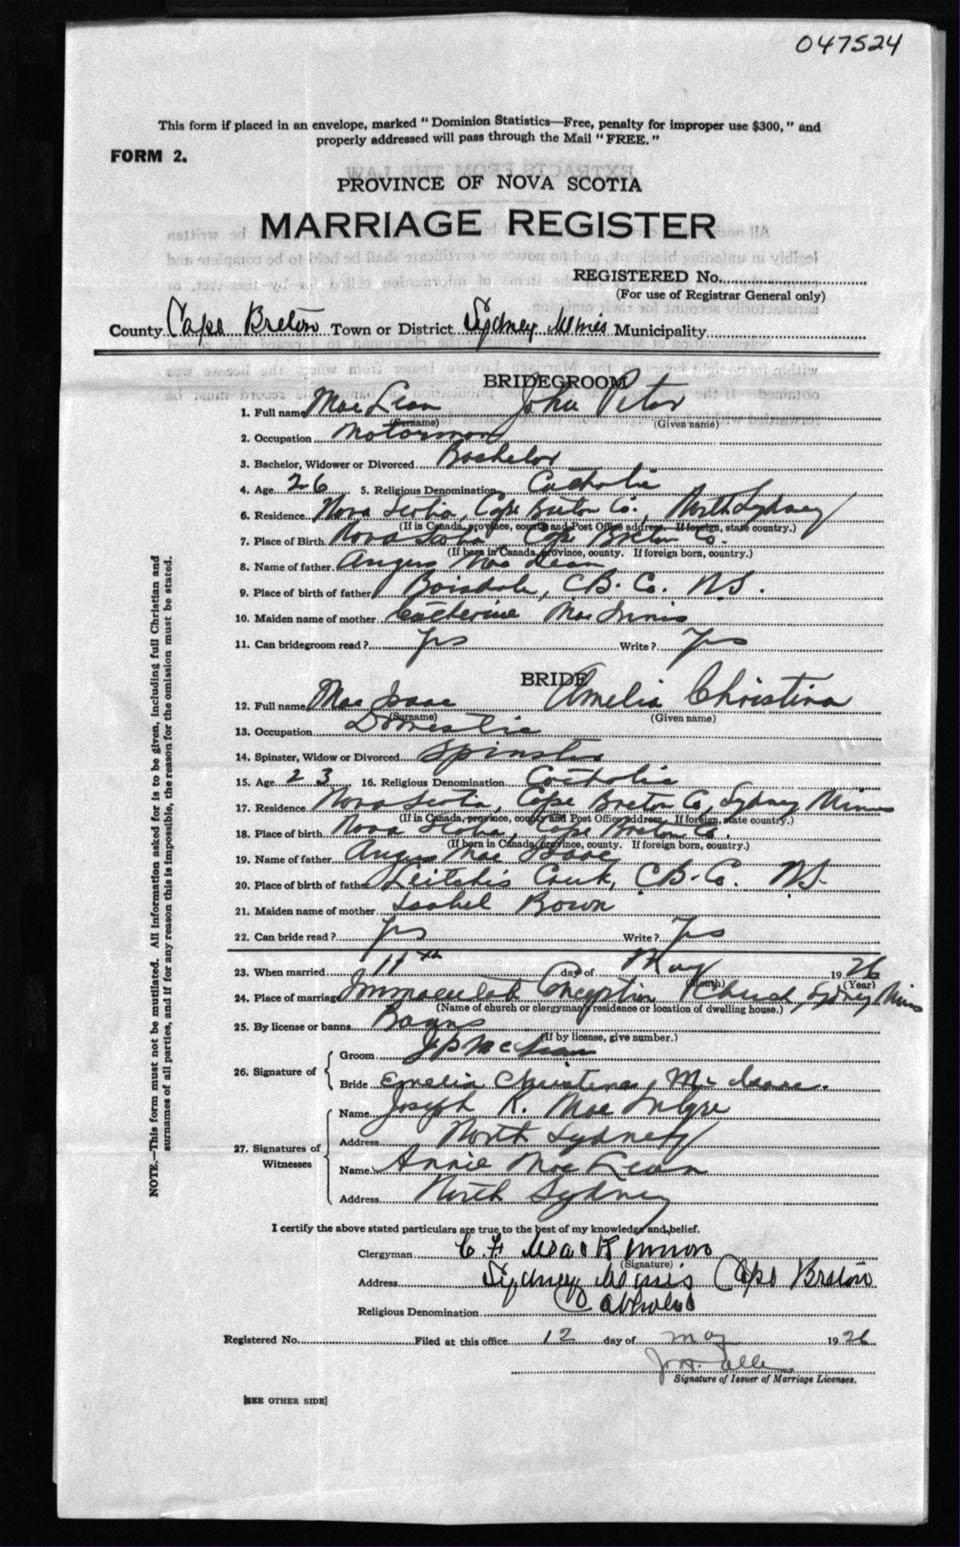 047524
This form if placed in an envelope, marked "Dominion Statistics—Free, penalty for improper use $300," and
properly addressed will pass through the Mail "FREE."
FORM 2.
PROVINCE OF NOVA SCOTIA
MARRIAGE REGISTER
REGISTERED No.
(For use of Registrar General only)
County Cape Breton Town or District Sydney Mines Municipality
BRIDEGROOM
1. Full name MacLean John Peter
(Surname) (Given name)
2. Occupation Motorman
3. Bachelor, Widower or Divorced Bachelor
4. Age 26 5. Religious Denomination Catholic
6. Residence Nova Scotia, Cape Breton Co., North Sydney
(If in Canada, province, county and Post Office address. If foreign, state country.)
7. Place of Birth Nova Scotia, Cape Breton Co.
(If born in Canada, province, county. If foreign born, country.)
8. Name of father Angus MacLean
9. Place of birth of father Boisdale, C.B. Co. N.S.
10. Maiden name of mother Catherine MacInnis
11. Can bridegroom read? Yes Write? Yes
BRIDE
12. Full name MacIsaac Amelia Christina
(Surname) (Given name)
13. Occupation Domestic
14. Spinster, Widow or Divorced Spinster
15. Age 23 16. Religious Denomination Catholic
17. Residence Nova Scotia, Cape Breton Co, Sydney Mines
(If in Canada, province, county and Post Office address. If foreign, state country.)
18. Place of birth Nova Scotia, Cape Breton Co.
(If born in Canada, province, county. If foreign born, country.)
19. Name of father Angus MacIsaac
20. Place of birth of father Leitchis Creek, C.B. Co. N.S.
21. Maiden name of mother Isabel Bown
22. Can bride read? Yes Write? Yes
23. When married 11th day of May 1926
(Month) (Year)
24. Place of marriage Immaculate Conception Church, Sydney Mines
(Name of church or clergyman's residence or location of dwelling house.)
25. By license or banns Banns
(If by license, give number.)
26. Signature of
Groom J P McLean
Bride Emelia Christena McIsaac.
27. Signatures of Witnesses
Name Joseph R. Mac
Address North Sydney
Name Annie MacLean
Address North Sydney
I certify the above stated particulars are true to the best of my knowledge and belief.
Clergyman C. F. MacKinnon
(Signature)
Address Sydney Mines Cape Breton
Religious Denomination Catholic
Registered No. Filed at this office 12 day of May 1926
Signature of Issuer of Marriage Licenses.
[SEE OTHER SIDE]
NOTE.—This form must not be mutilated. All information asked for is to be given, including full Christian and
surnames of all parties, and if for any reason this is impossible, the reason for the omission must be stated.